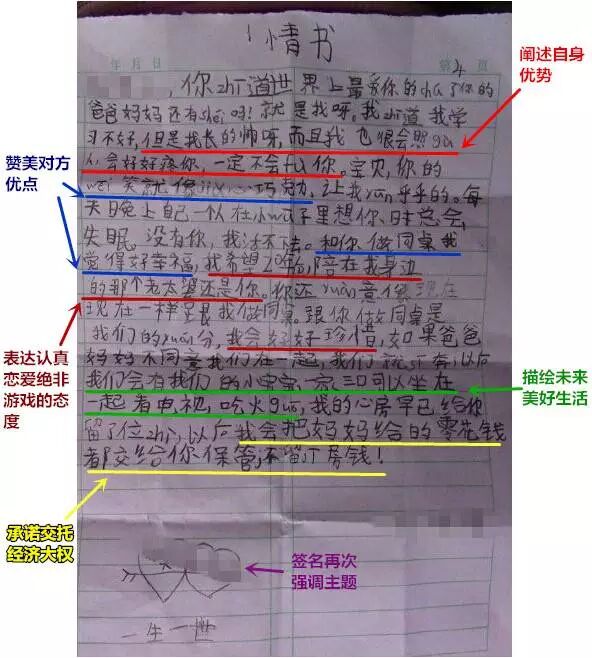 情书
年 月 日
第 4 页
,你zhi道世界上最爱你的chú了你的
爸爸妈妈还有shéi吗!就是我呀。我zhi道我学
习不好,但是我长的帅呀,而且我也很会照gù
会好好疼你,一定不会 你。宝贝,你的
wēi笑就像 巧克力,让我 乎乎的。每
天晚上自己一个人在小 子里想你,时总会
失眠。没有你,我活不下去。和你做同桌我
觉得好幸福,我希望20年 陪在我身边
的那个老太婆还是你。你还yuàn意像现在
现在一样坐 我做同桌。跟你做同桌是
我们的yuán分,我会好好珍惜,如果爸爸
妈妈不同意我们在一起,我们就 ,以后
我们会有我们的小宝宝,一家三口可以坐在
一起看电视,吃火guō,我的心房早已给你
留了位zhì,以后我会把妈妈给的零花钱
都交给你保管,不留 房钱!
一生一世
阐述自身
优势
赞美对方
优点
表达认真
恋爱绝非
游戏的态
度
描绘未来
美好生活
承诺交托
经济大权
签名再次
强调主题